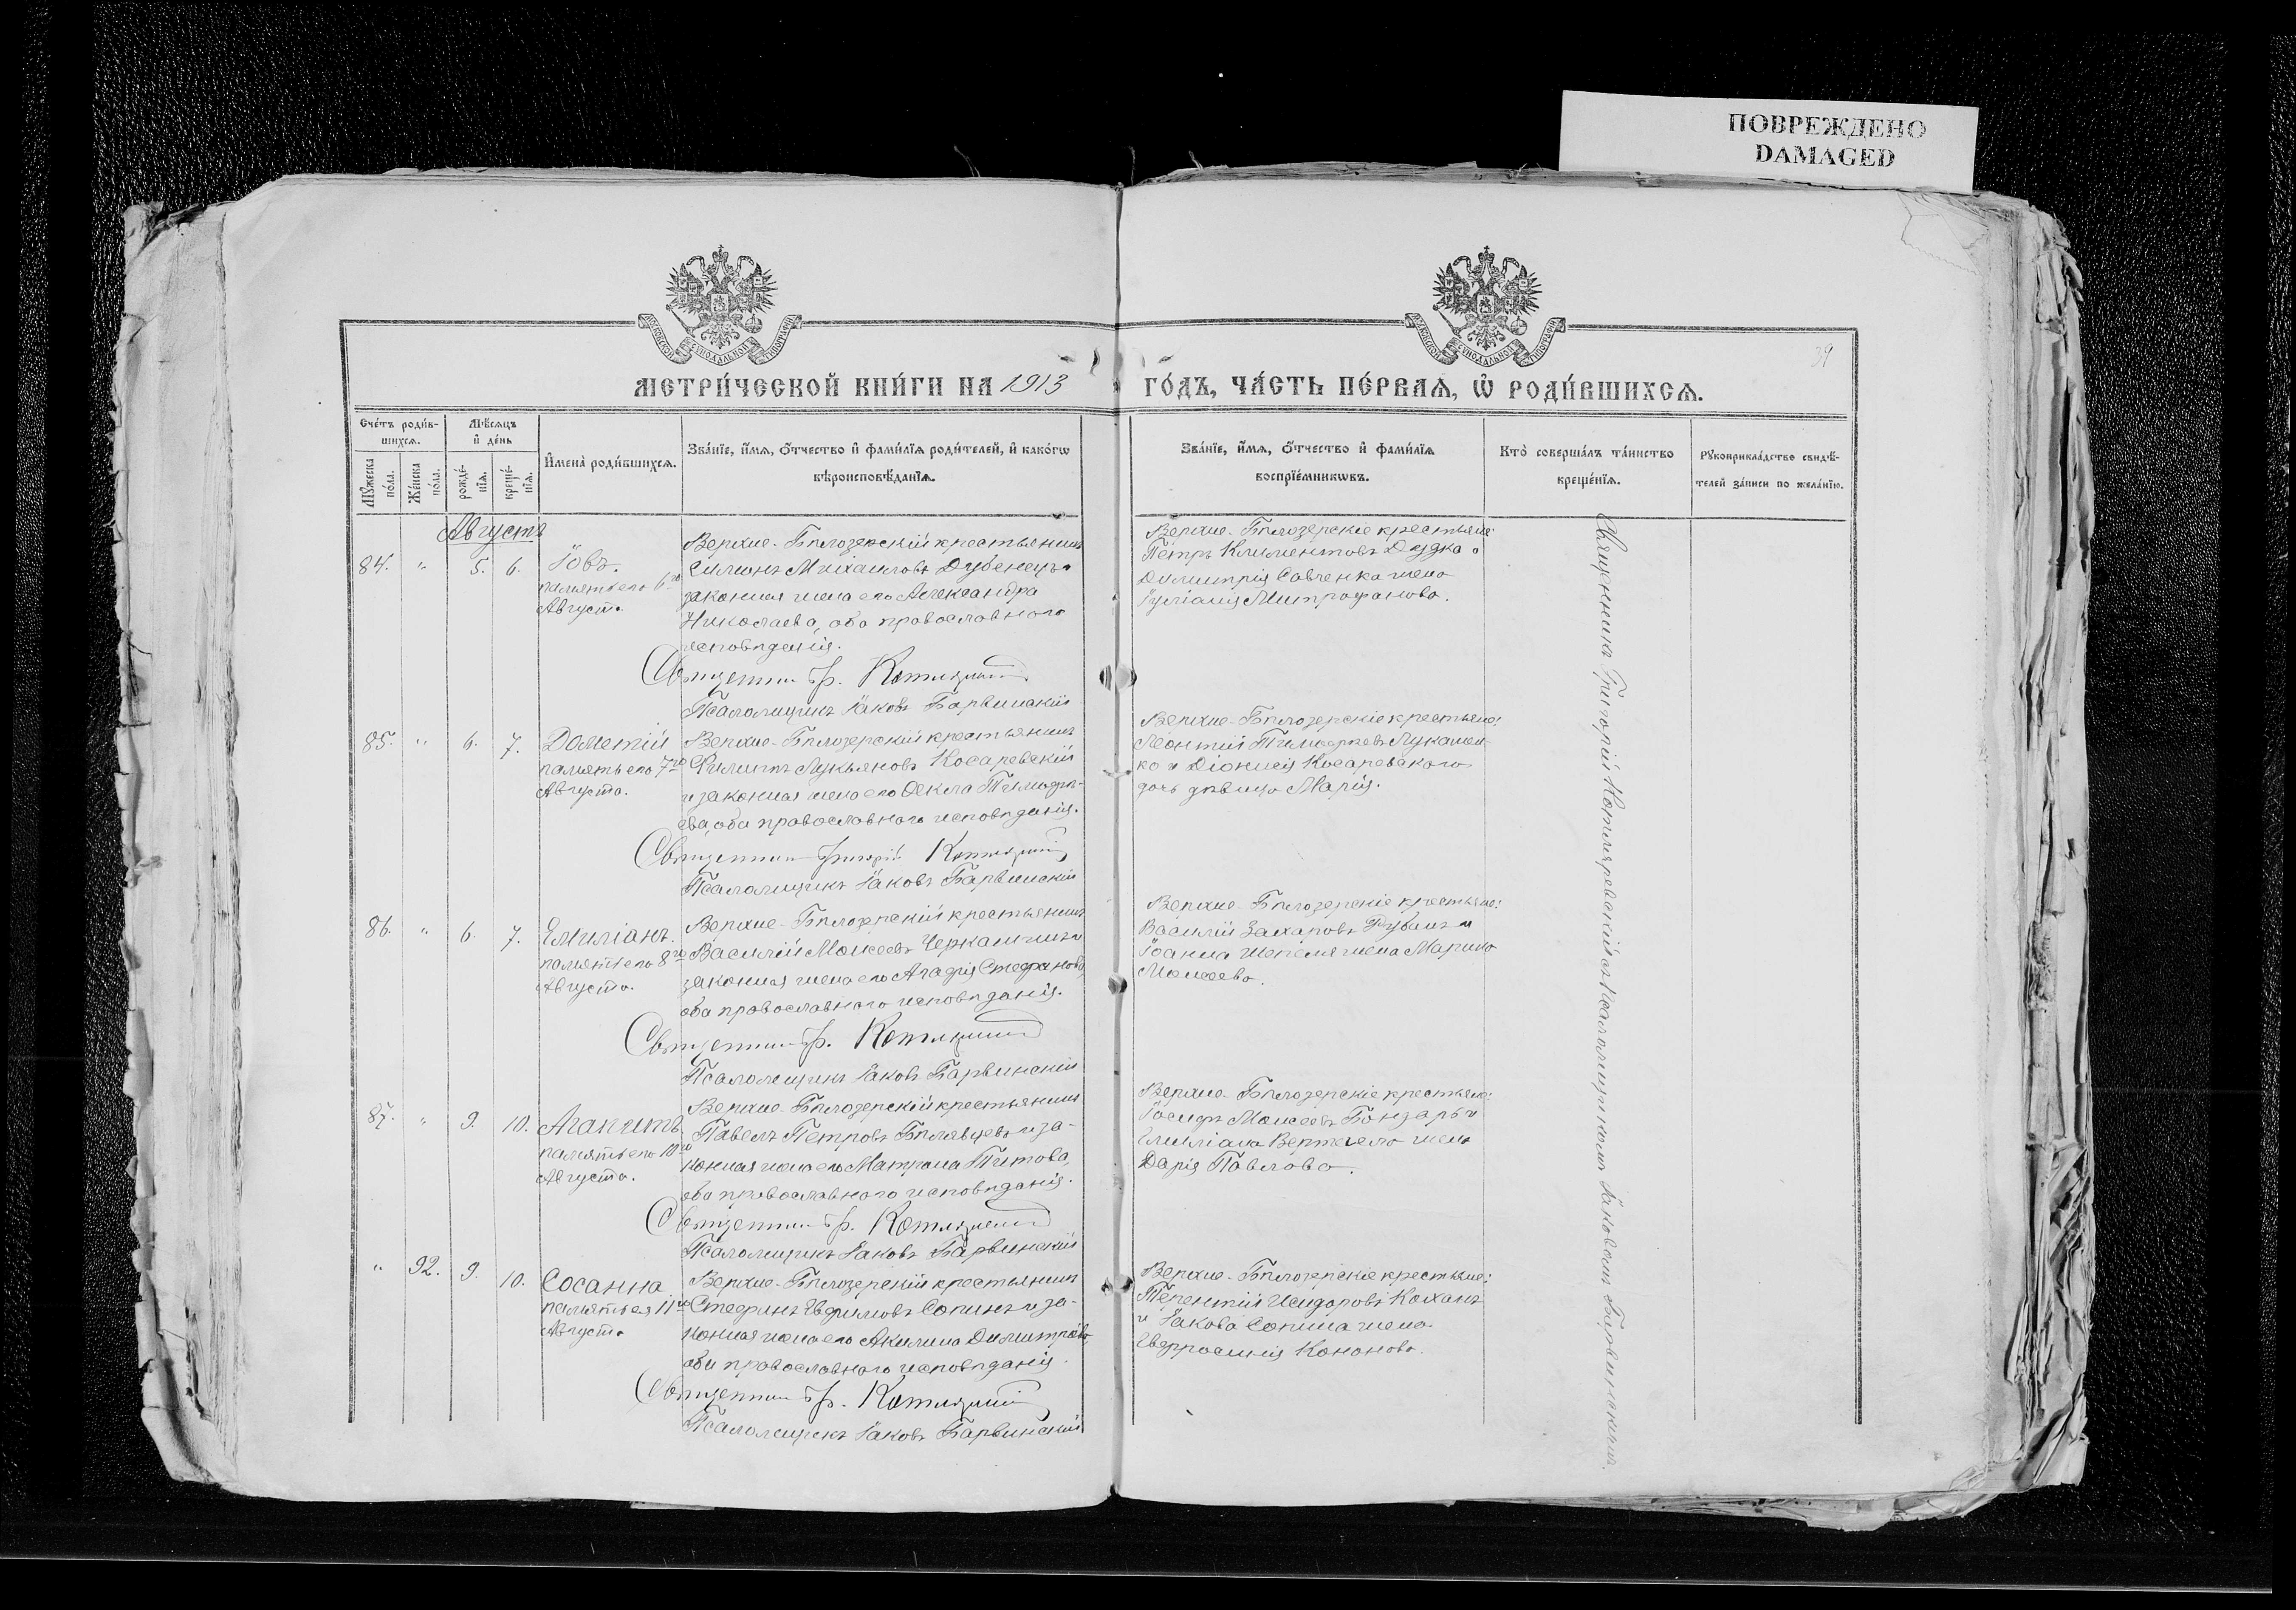 ПОВРЕЖДЕНО
DAMAGED
39
МЕТРИ́ЧЕСКОЙ КНИ́ГИ НА 1913
ГО́ДЪ, ЧА́СТЬ ПЕ́РВАЯ, Ѡ҆ РОДИ́ВШИХСЯ.
Сче́тъ роди́в-
шихся.
Мѣ́сяцъ
и҆ де́нь
Мꙋ́жеска по́ла.
Же́нска по́ла.
рожде́-
нїя.
креще́-
нїя.
И҆мена̀ роди́вшихся.
Зва́нїе, и҆́мя, ѻ҆́тчество и҆ фами́лїя роди́телей, и҆ како́гѡ
вѣроисповѣ́данїя.
Зва́нїе, и҆́мя, ѻ҆́тчество и҆ фами́лїя
воспрїе́мникѡвъ.
Кто̀ соверша́лъ та́инство
креще́нїя.
Рꙋкоприкла́дство свидѣ́-
телей за́писи по жела́нїю.
Августъ
84. " 5. 6.
Іовъ.
память его 6го
Августа
Верхне-Бѣлозерскій крестьянинъ
Михаиловъ Дубенецъ и
законная жена его Александра
Николаева, оба православнаго
исповѣданія.
Священникъ Гр. Котляревскій
Псаломщикъ Іаковъ Барвинскій
Верхне-Бѣлозерскіе крестьяне:
Петръ Климентовъ Дудка и
Димитрія Савченка жена
Іуліанія Митрофанова.
85. " 6. 7.
Дометій
память его 7го
Августа.
Верхне-Бѣлозерскій крестьянинъ
Филиппъ Лукьяновъ Косаревскій
и законная жена его Ѳекла Тимоѳе-
ева, оба православнаго исповѣданія.
Священникъ Григорій Котляревскій
Псаломщикъ Іаковъ Барвинскій
Верхне-Бѣлозерскіе крестьяне:
Леонтій Тимоѳеевъ Лукашен-
ко и Діонисія Косаревскаго
дочь дѣвица Марія.
86. " 6. 7.
Емиліанъ.
память его 8го
Августа.
Верхне-Бѣлозерскій крестьянинъ
Василій Моисеевъ и
законная жена его Агафія Стефанова,
оба православнаго исповѣданія.
Священникъ Гр. Котляревскій
Псаломщикъ Іаковъ Барвинскій
Верхне-Бѣлозерскіе крестьяне:
Василій Захаровъ Рубанъ и
Іоанна Шепеля жена Марина
Моисеева.
87. " 9. 10.
Агапитъ.
память его 10го
Августа.
Верхне-Бѣлозерскій крестьянинъ
Павелъ Петровъ Бѣлявцевъ и за-
конная жена его Матрона Титова,
оба православнаго исповѣданія.
Священникъ Гр. Котляревскій
Псаломщикъ Іаковъ Барвинскій
Верхне-Бѣлозерскіе крестьяне:
Іосифъ Моисеевъ Бондарь и
Емиліана жена
Дарія Павлова.
" 92. 9. 10.
Сосанна
память ея 11го
Августа
Верхне-Бѣлозерскій крестьянинъ
Стефанъ Евфимовъ Сопинъ и за-
конная жена его Акилина Димитріева,
оба православнаго исповѣданія.
Священникъ Гр. Котляревскій
Псаломщикъ Іаковъ Барвинскій
Верхне-Бѣлозерскіе крестьяне:
Терентій Исидоровъ Коханъ
и Іакова Сопина жена
Евфросинія Кононова.
Священникъ Григорій Котляревскій съ псаломщикомъ Іаковомъ Барвинскимъ.